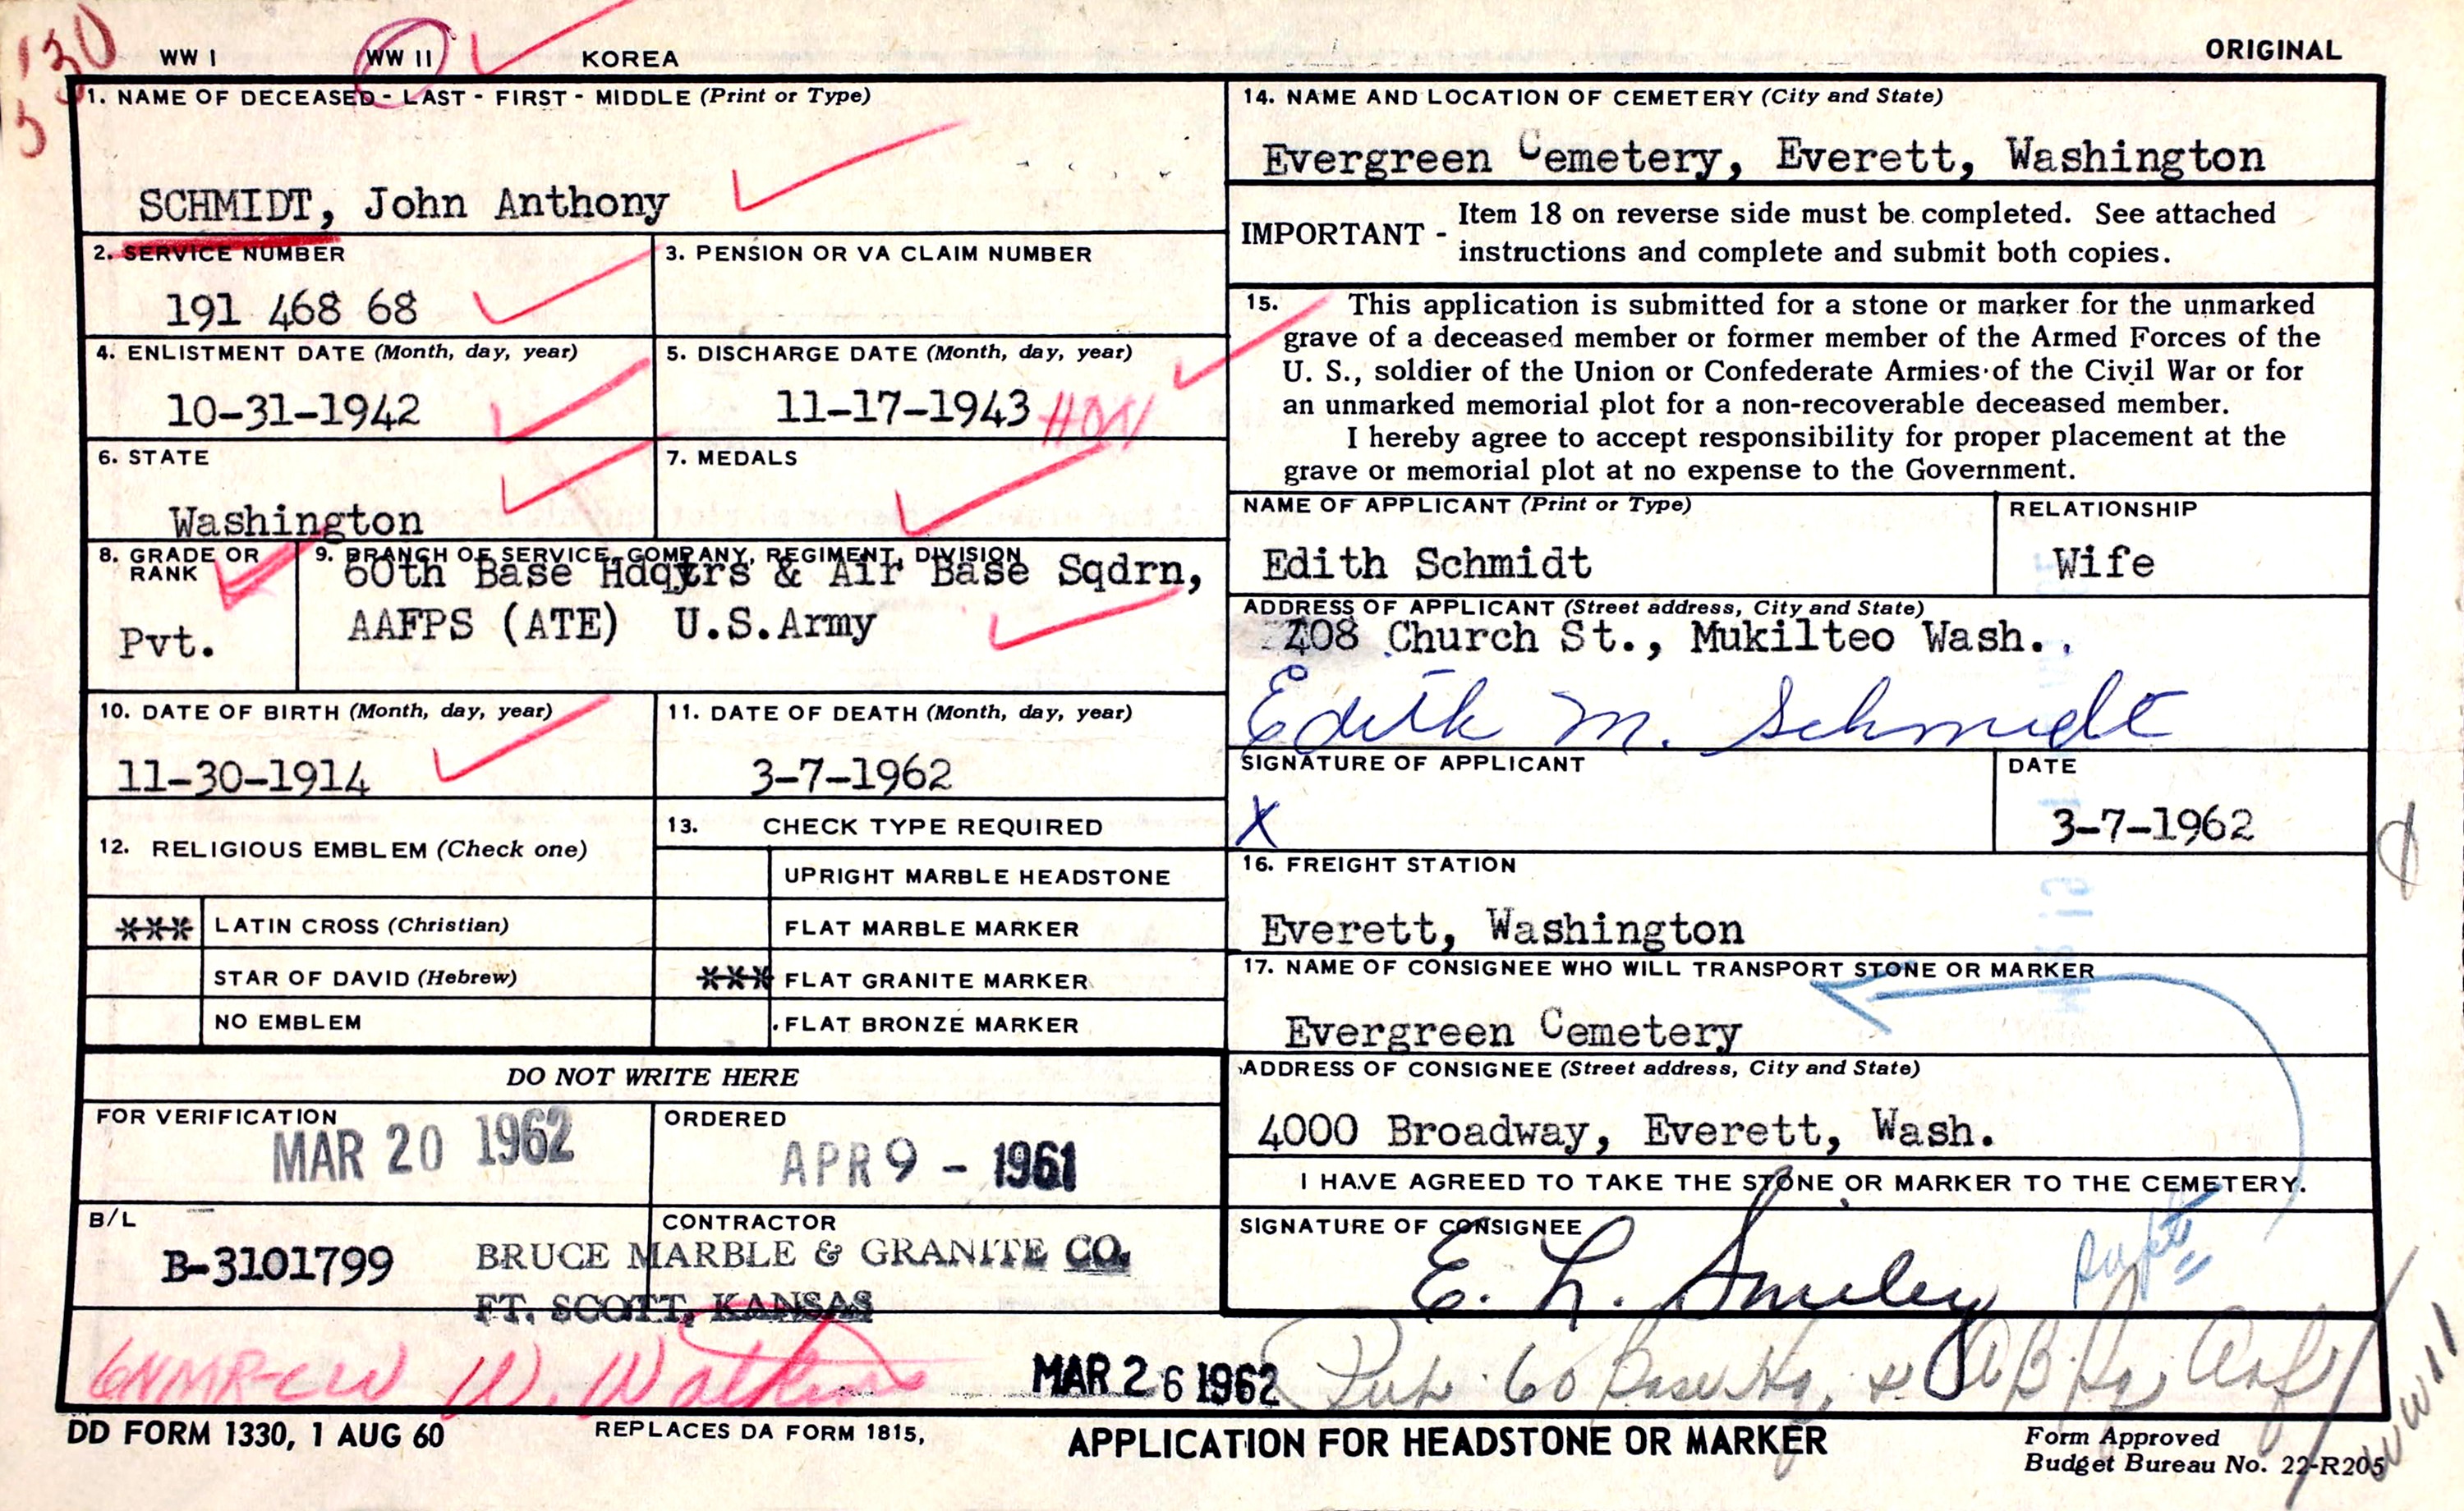 130
5
WW I WW II KOREA
ORIGINAL
1. NAME OF DECEASED - LAST - FIRST - MIDDLE (Print or Type)
SCHMIDT, John Anthony
2. SERVICE NUMBER
191 468 68
3. PENSION OR VA CLAIM NUMBER
4. ENLISTMENT DATE (Month, day, year)
10-31-1942
5. DISCHARGE DATE (Month, day, year)
11-17-1943 HON
6. STATE
Washington
7. MEDALS
8. GRADE OR
RANK
Pvt.
9. BRANCH OF SERVICE, COMPANY, REGIMENT, DIVISION
60th Base Hdqtrs & Air Base Sqdrn,
AAFPS (ATE) U.S.Army
10. DATE OF BIRTH (Month, day, year)
11-30-1914
11. DATE OF DEATH (Month, day, year)
3-7-1962
12. RELIGIOUS EMBLEM (Check one)
*** LATIN CROSS (Christian)
STAR OF DAVID (Hebrew)
NO EMBLEM
13. CHECK TYPE REQUIRED
UPRIGHT MARBLE HEADSTONE
FLAT MARBLE MARKER
*** FLAT GRANITE MARKER
FLAT BRONZE MARKER
DO NOT WRITE HERE
FOR VERIFICATION
MAR 20 1962
ORDERED
APR 9 - 1961
B/L
B-3101799
CONTRACTOR
BRUCE MARBLE & GRANITE CO.
FT. SCOTT, KANSAS
14. NAME AND LOCATION OF CEMETERY (City and State)
Evergreen Cemetery, Everett, Washington
IMPORTANT - Item 18 on reverse side must be completed. See attached
instructions and complete and submit both copies.
15. This application is submitted for a stone or marker for the unmarked
grave of a deceased member or former member of the Armed Forces of the
U. S., soldier of the Union or Confederate Armies of the Civil War or for
an unmarked memorial plot for a non-recoverable deceased member.
I hereby agree to accept responsibility for proper placement at the
grave or memorial plot at no expense to the Government.
NAME OF APPLICANT (Print or Type)
Edith Schmidt
RELATIONSHIP
Wife
ADDRESS OF APPLICANT (Street address, City and State)
408 Church St., Mukilteo Wash.
Edith M. Schmidt
SIGNATURE OF APPLICANT
X
DATE
3-7-1962
16. FREIGHT STATION
Everett, Washington
17. NAME OF CONSIGNEE WHO WILL TRANSPORT STONE OR MARKER
Evergreen Cemetery
ADDRESS OF CONSIGNEE (Street address, City and State)
4000 Broadway, Everett, Wash.
I HAVE AGREED TO TAKE THE STONE OR MARKER TO THE CEMETERY.
SIGNATURE OF CONSIGNEE
E. L. Smiley
Supt
W. Watkins
MAR 26 1962
60 Base Hq, & AB
WWII
DD FORM 1330, 1 AUG 60
REPLACES DA FORM 1815,
APPLICATION FOR HEADSTONE OR MARKER
Form Approved
Budget Bureau No. 22-R205